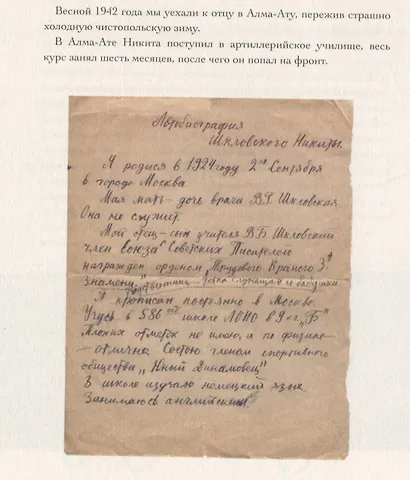 Весной 1942 года мы уехали к отцу в Алма-Ату, пережив страшно
холодную чистопольскую зиму.
В Алма-Ате Никита поступил в артиллерийское училище, весь
курс занял шесть месяцев, после чего он попал на фронт.
Автобиография
Шкловского Никиты.
Я родился в 1924 году 2го Сентября
в городе Москва
Мая мать - дочь врача В.Г. Шкловская
Она не служит.
Мой отец - сын учителя В.Б. Шкловский
член Союза Советских Писателей
награжден орденом „Трудового Красного З.
Знамени."
Я прописан постоянно в Москве.
Учусь в 586 школе ЛОНО в 9 кл. „Б"
Плохих отметок не имею, а по физике
отлична Состою членом спортивного
общества „Юный Динамовец"
В школе изучаю немецкий язык
Занимаюсь английским.